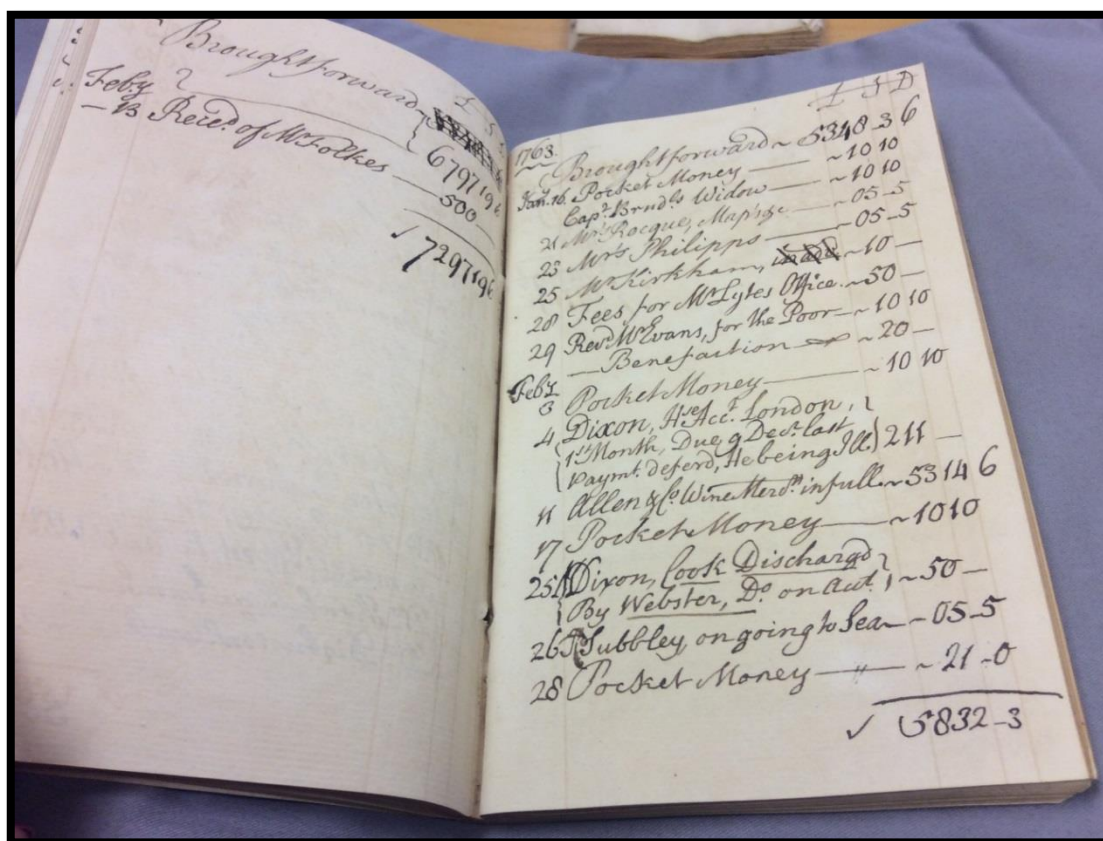 Brought forward
£ S
679719 6
Feby
13 Reced. of Mr Folkes
500
729719 6
1763.
£ S D
Brought forward ~ 5348-3 6
Jany. 16. Pocket Money ~ 10 10
Capt Brnd's Widow ~ 10 10
21 Mrs Rocque, Maps &c — 05-5
23 Mrs Philipps — 05-5
25 Mr Kirkham, ~ 10 —
28 Fees for Mr Lytes Office. ~ 50 —
29 Revd Mr Evans, for the Poor — ~ 10 10
— Benefaction ~ 20 —
Feby
3 Pocket Money — ~ 10 10
4 Dixon, Hse Acct. London,
1st Month, Due 9 Decr. last
paymt. deferd, He being Ill. 211 —
11 Allen & Co. Wine Mercts in full ~ 5314 6
17 Pocket Money — ~ 1010
25 Dixon, Cook Dischargd
By Webster, Do on Acct. ~ 50 —
26 Tubbley, on going to Sea — 05-5
28 Pocket Money — ~ 21-0
5832-3